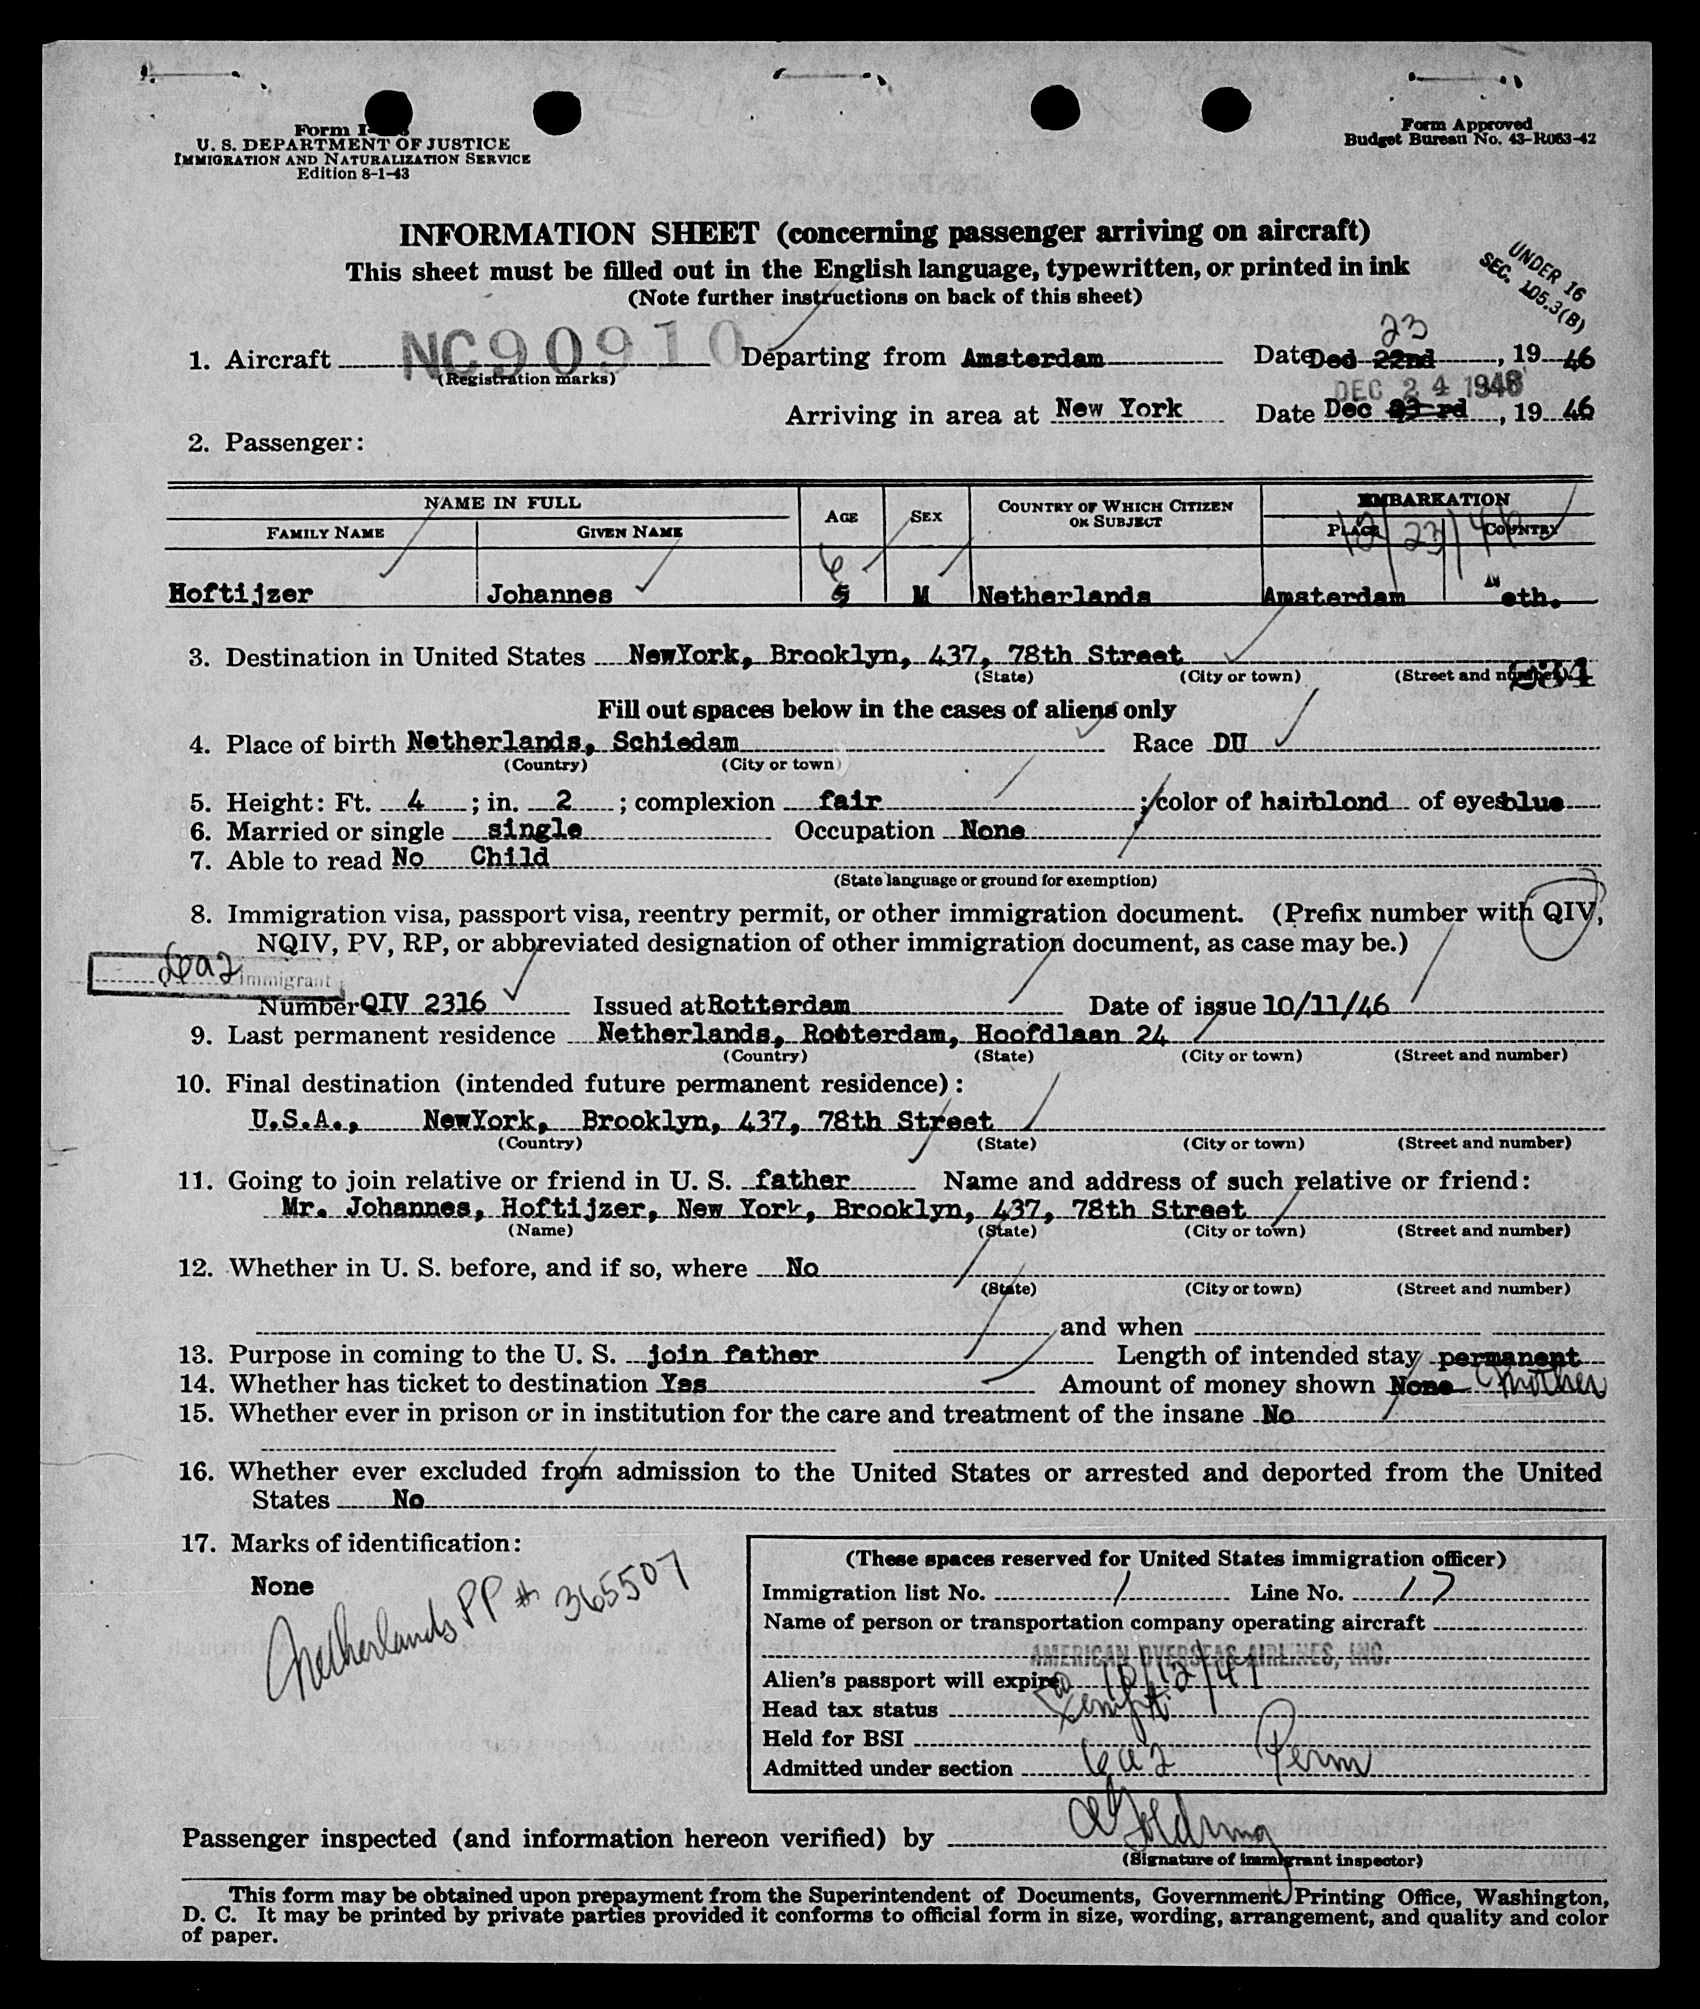 Form I-
U. S. DEPARTMENT OF JUSTICE
IMMIGRATION AND NATURALIZATION SERVICE
Edition 8-1-43
Form Approved
Budget Bureau No. 43-R063-42
INFORMATION SHEET (concerning passenger arriving on aircraft)
This sheet must be filled out in the English language, typewritten, or printed in ink
(Note further instructions on back of this sheet)
UNDER 16
SEC. 105.3(B)
23
1. Aircraft NC90910 Departing from Amsterdam Date Ded 22nd, 19 46
(Registration marks)
DEC 24 1946
Arriving in area at New York Date Dec 23 rd, 19 46
2. Passenger:
NAME IN FULL AGE SEX COUNTRY OF WHICH CITIZEN OR SUBJECT EMBARKATION
FAMILY NAME GIVEN NAME PLACE COUNTRY
12/23/46
6
Hoftijzer Johannes 5 M Netherlands Amsterdam Neth.
3. Destination in United States NewYork, Brooklyn, 437, 78th Street
(State) (City or town) (Street and number)
Fill out spaces below in the cases of aliens only
4. Place of birth Netherlands, Schiedam Race DU
(Country) (City or town)
5. Height: Ft. 4; in. 2; complexion fair; color of hair blond of eyes blue
6. Married or single single Occupation None
7. Able to read No Child
(State language or ground for exemption)
8. Immigration visa, passport visa, reentry permit, or other immigration document. (Prefix number with QIV,
NQIV, PV, RP, or abbreviated designation of other immigration document, as case may be.)
6a2 immigrant
Number QIV 2316 Issued at Rotterdam Date of issue 10/11/46
9. Last permanent residence Netherlands, Rotterdam, Hoofdlaan 24
(Country) (State) (City or town) (Street and number)
10. Final destination (intended future permanent residence):
U.S.A., NewYork, Brooklyn, 437, 78th Street
(Country) (State) (City or town) (Street and number)
11. Going to join relative or friend in U. S. father Name and address of such relative or friend:
Mr. Johannes, Hoftijzer, New York, Brooklyn, 437, 78th Street
(Name) (State) (City or town) (Street and number)
12. Whether in U. S. before, and if so, where No
(State) (City or town) (Street and number)
and when
13. Purpose in coming to the U. S. join father Length of intended stay permanent
14. Whether has ticket to destination Yes Amount of money shown None Mother
15. Whether ever in prison or in institution for the care and treatment of the insane No
16. Whether ever excluded from admission to the United States or arrested and deported from the United
States No
17. Marks of identification:
None
Netherlands PP # 365507
(These spaces reserved for United States immigration officer)
Immigration list No. 1 Line No. 17
Name of person or transportation company operating aircraft
AMERICAN OVERSEAS AIRLINES, INC.
Alien's passport will expire 10/12/47
Head tax status Exempt
Held for BSI
Admitted under section 6a2 Perm
Passenger inspected (and information hereon verified) by
(Signature of immigrant inspector)
This form may be obtained upon prepayment from the Superintendent of Documents, Government Printing Office, Washington,
D. C. It may be printed by private parties provided it conforms to official form in size, wording, arrangement, and quality and color
of paper.